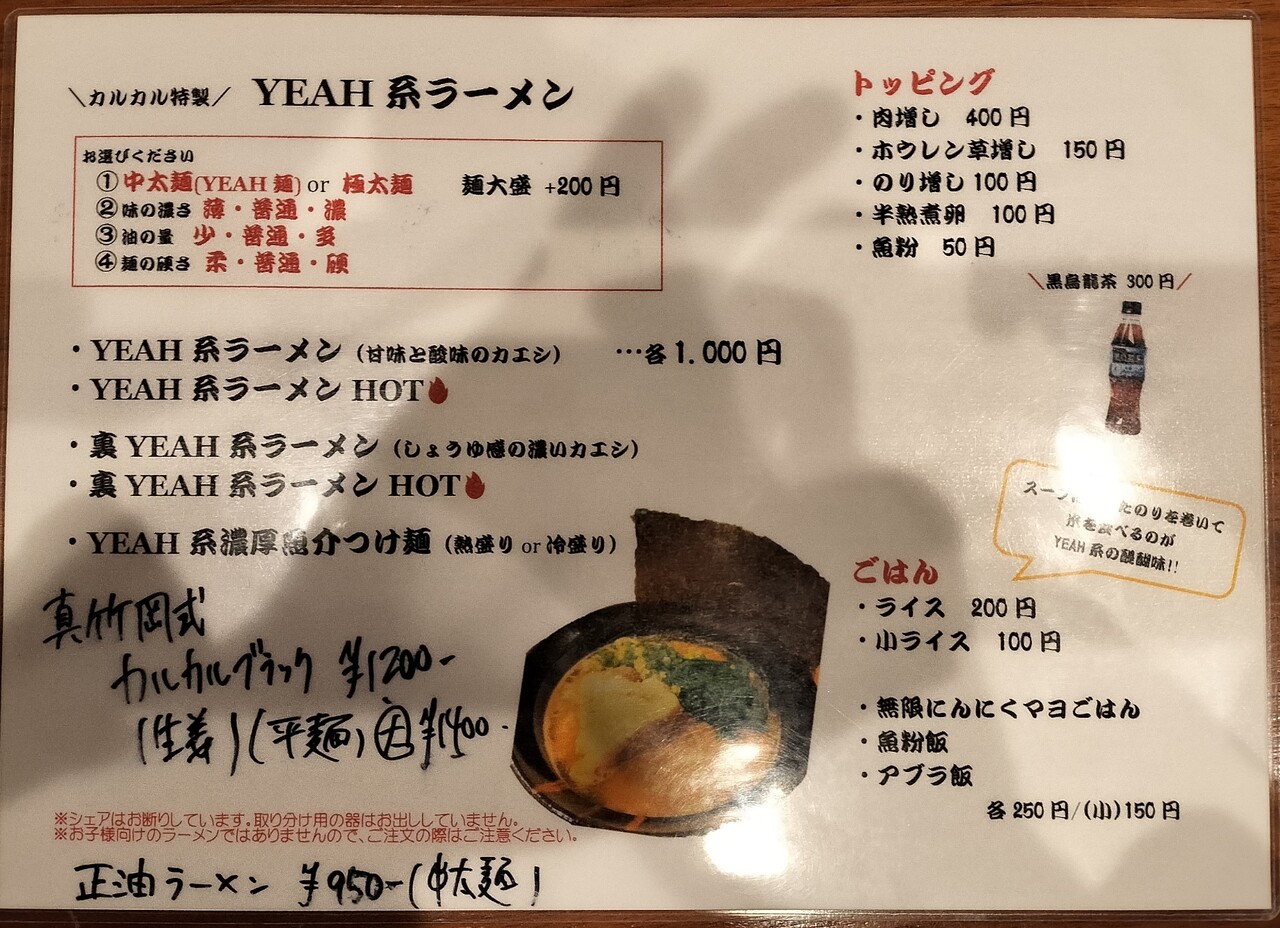 ＼カルカル特製／ YEAH 系ラーメン
お選びください
①中太麺(YEAH 麺) or 極太麺 麺大盛 +200 円
②味の濃さ 薄・普通・濃
③油の量 少・普通・多
④麺の硬さ 柔・普通・硬
・YEAH 系ラーメン（甘味と酸味のカエシ） …各 1.000 円
・YEAH 系ラーメン HOT
・裏 YEAH 系ラーメン（しょうゆ感の濃いカエシ）
・裏 YEAH 系ラーメン HOT
・YEAH 系濃厚魚介つけ麺（熱盛り or 冷盛り）
真竹岡式
カルカルブラック ¥1200-
(生姜)(平麺) 大 ¥1400-
※シェアはお断りしています。取り分け用の器はお出ししていません。
※お子様向けのラーメンではありませんので、ご注文の際はご注意ください。
正油ラーメン ¥950-(中太麺)
トッピング
・肉増し 400 円
・ホウレン草増し 150 円
・のり増し 100 円
・半熟煮卵 100 円
・魚粉 50 円
＼黒烏龍茶 300 円／
スープ たのりを巻いて
米を食べるのが
YEAH 系の醍醐味!!
ごはん
・ライス 200 円
・小ライス 100 円
・無限にんにくマヨごはん
・魚粉飯
・アブラ飯
各 250 円/(小)150 円